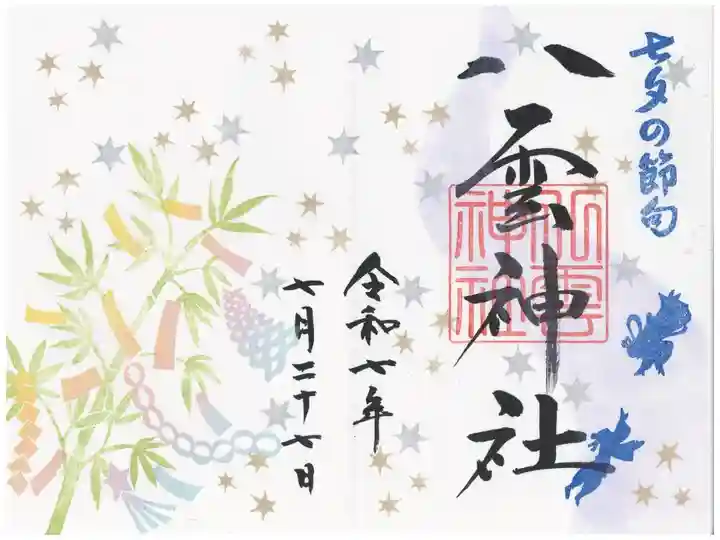 七夕の節句
八雲神社
八雲
神社
令和七年
七月二十七日